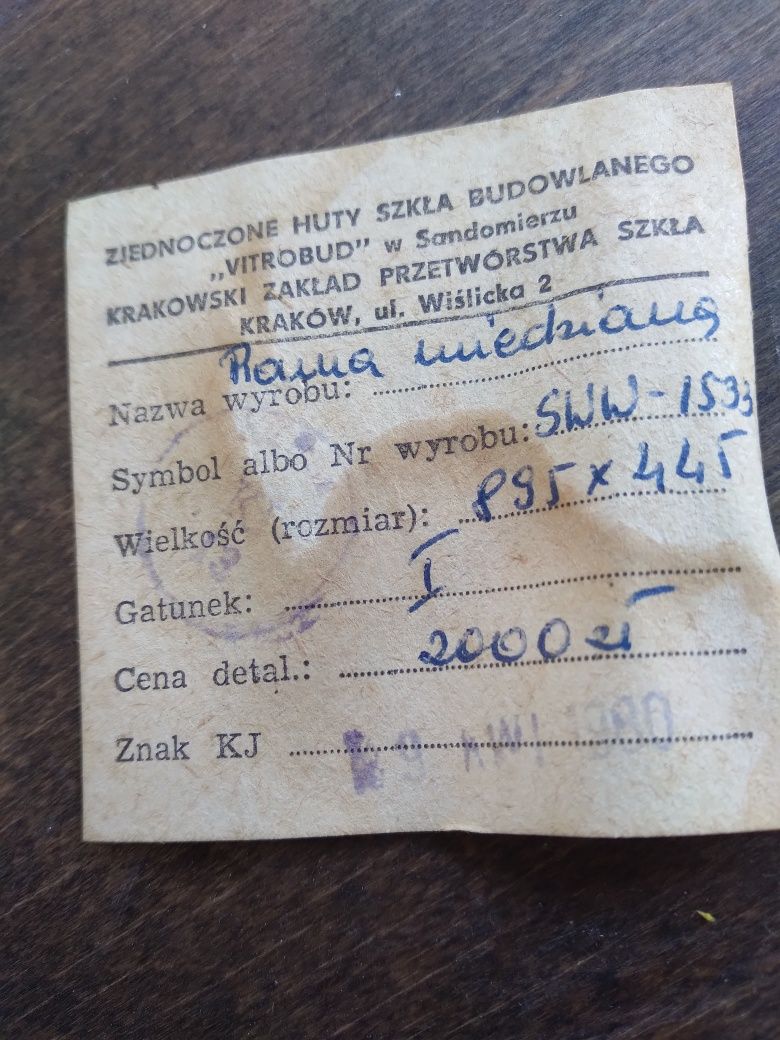 ZJEDNOCZONE HUTY SZKŁA BUDOWLANEGO
„VITROBUD" w Sandomierzu
KRAKOWSKI ZAKŁAD PRZETWÓRSTWA SZKŁA
KRAKÓW, ul. Wiślicka 2
Nazwa wyrobu: Rama miedziana
Symbol albo Nr wyrobu: SWW-1533
Wielkość (rozmiar): 895 x 445
Gatunek: I
Cena detal.: 2000 zł
Znak KJ 9 KWI 1980